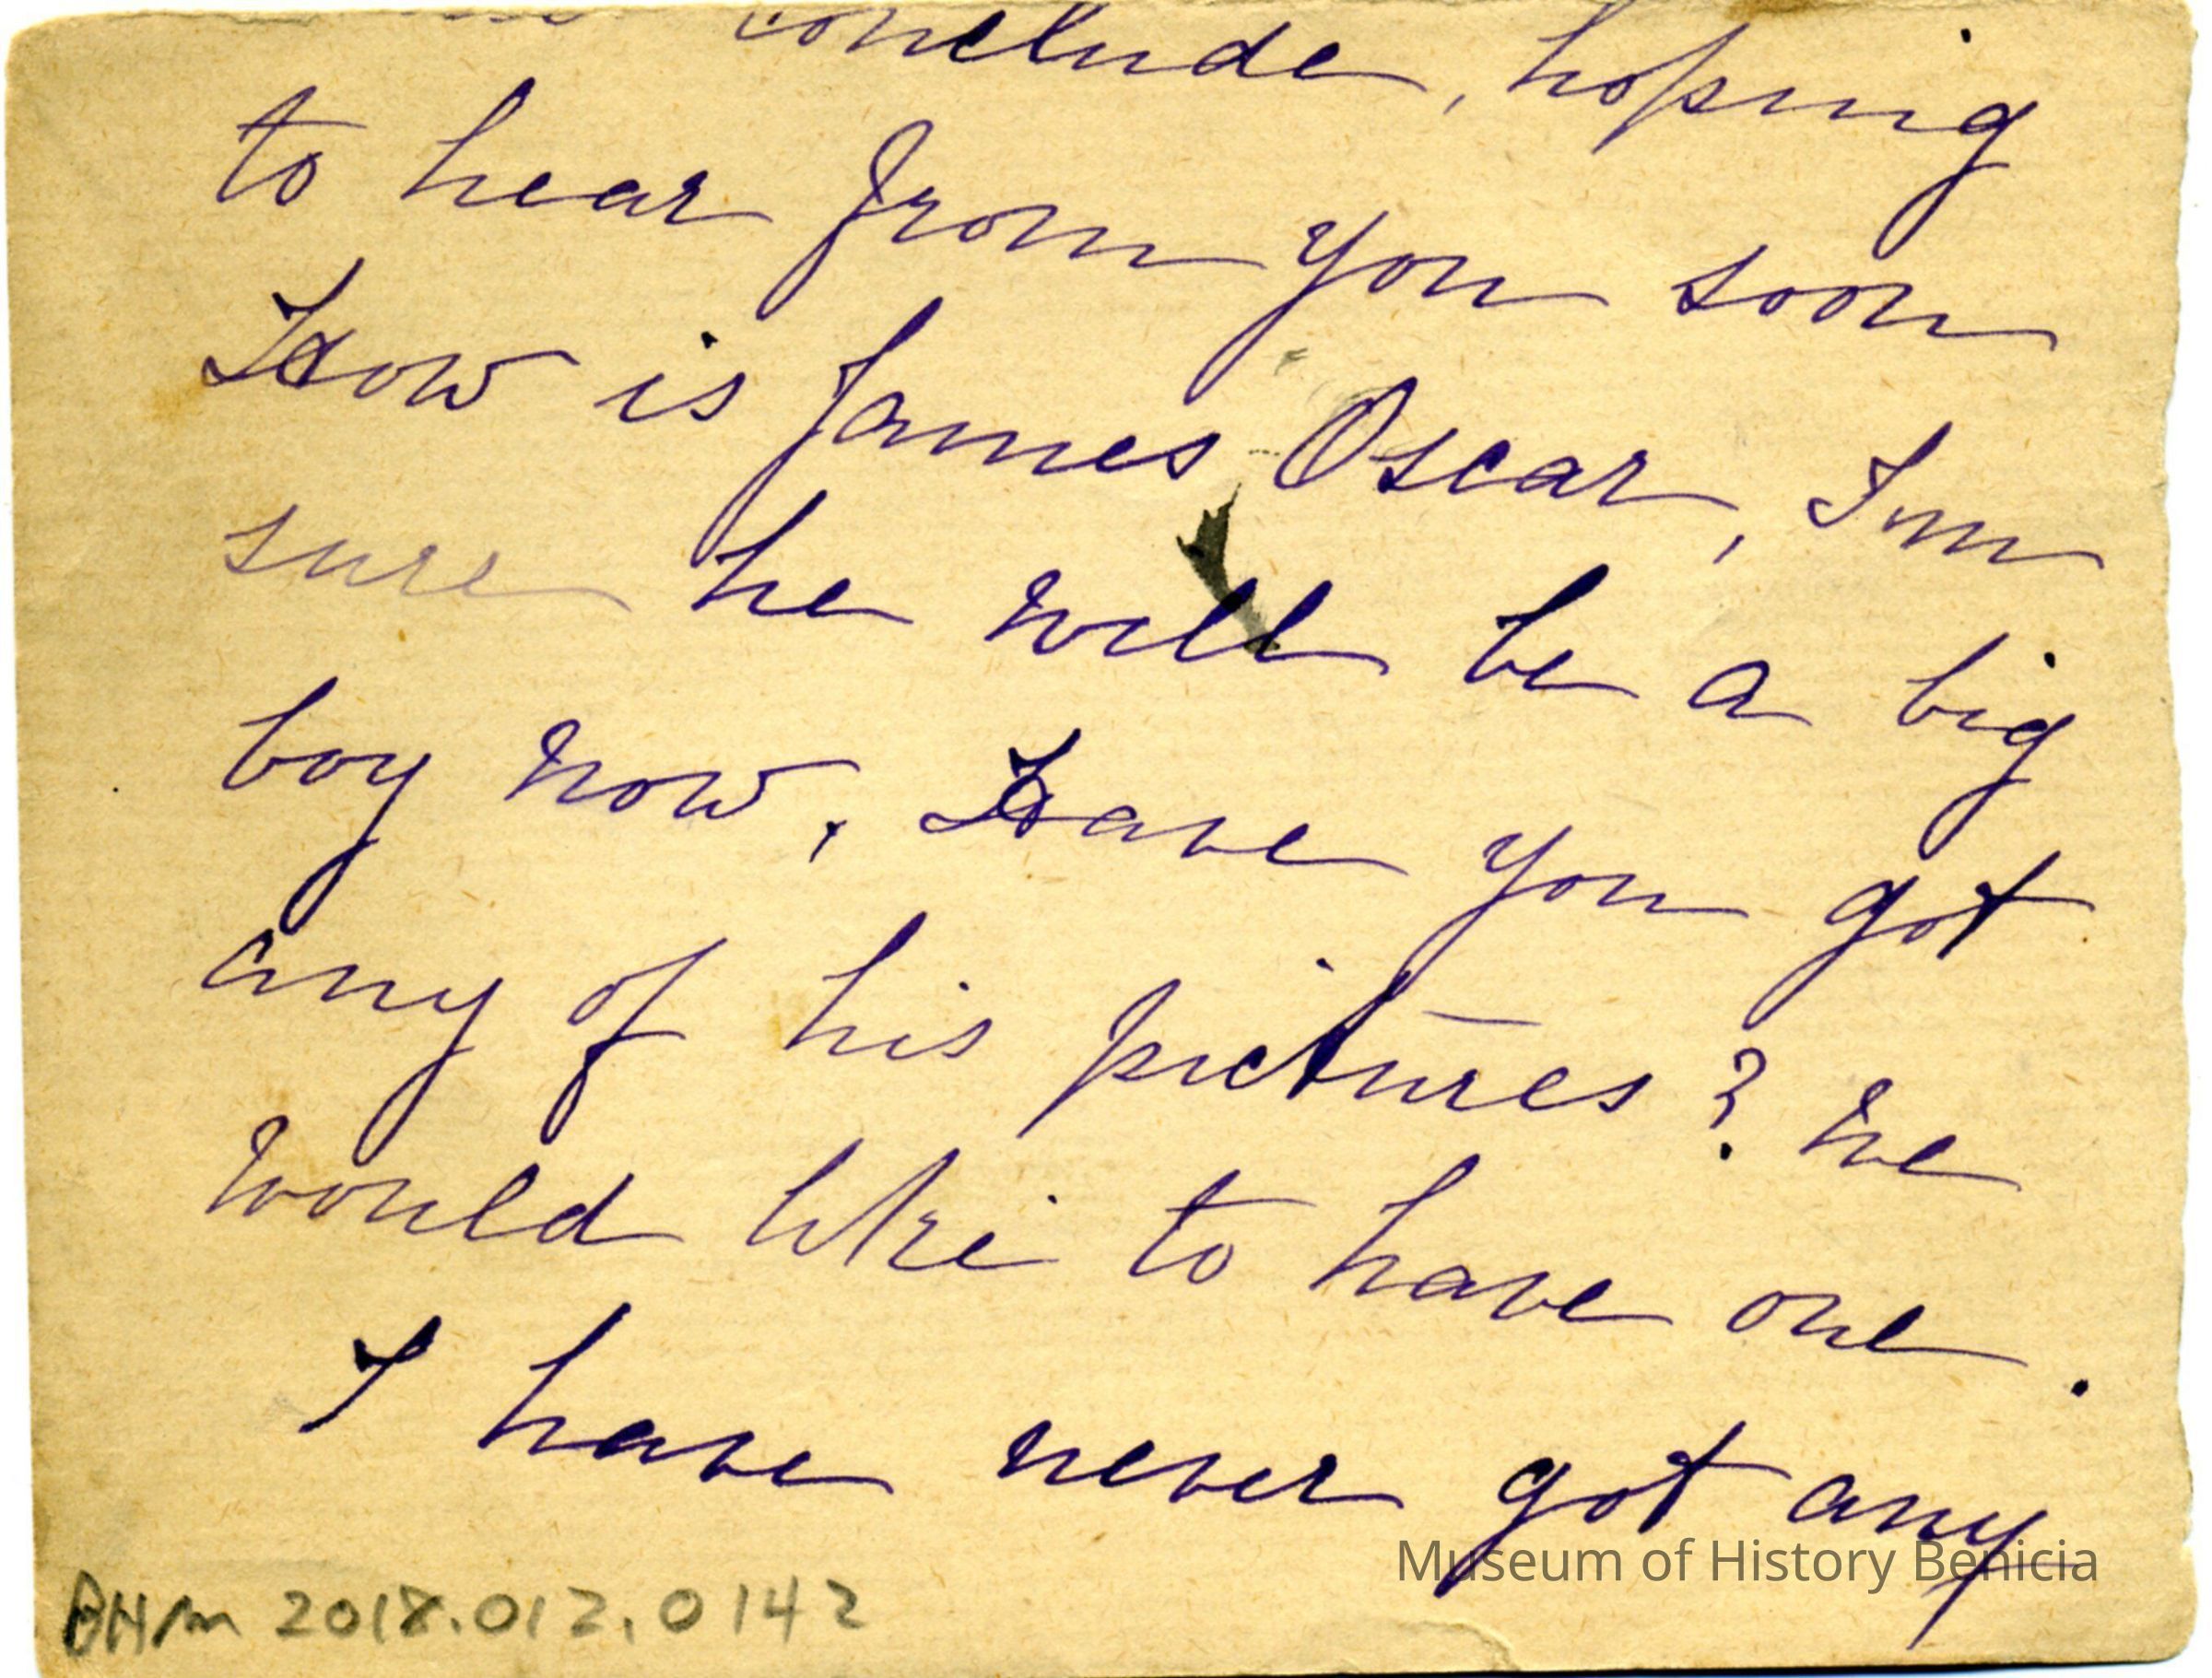 conclude, hoping
to hear from you soon
How is James Oscar, Im
sure he will be a big
boy now, Have you got
any of his pictures? we
would like to have one.
I have never got any
Museum of History Benicia
BHM 2018.012.0142